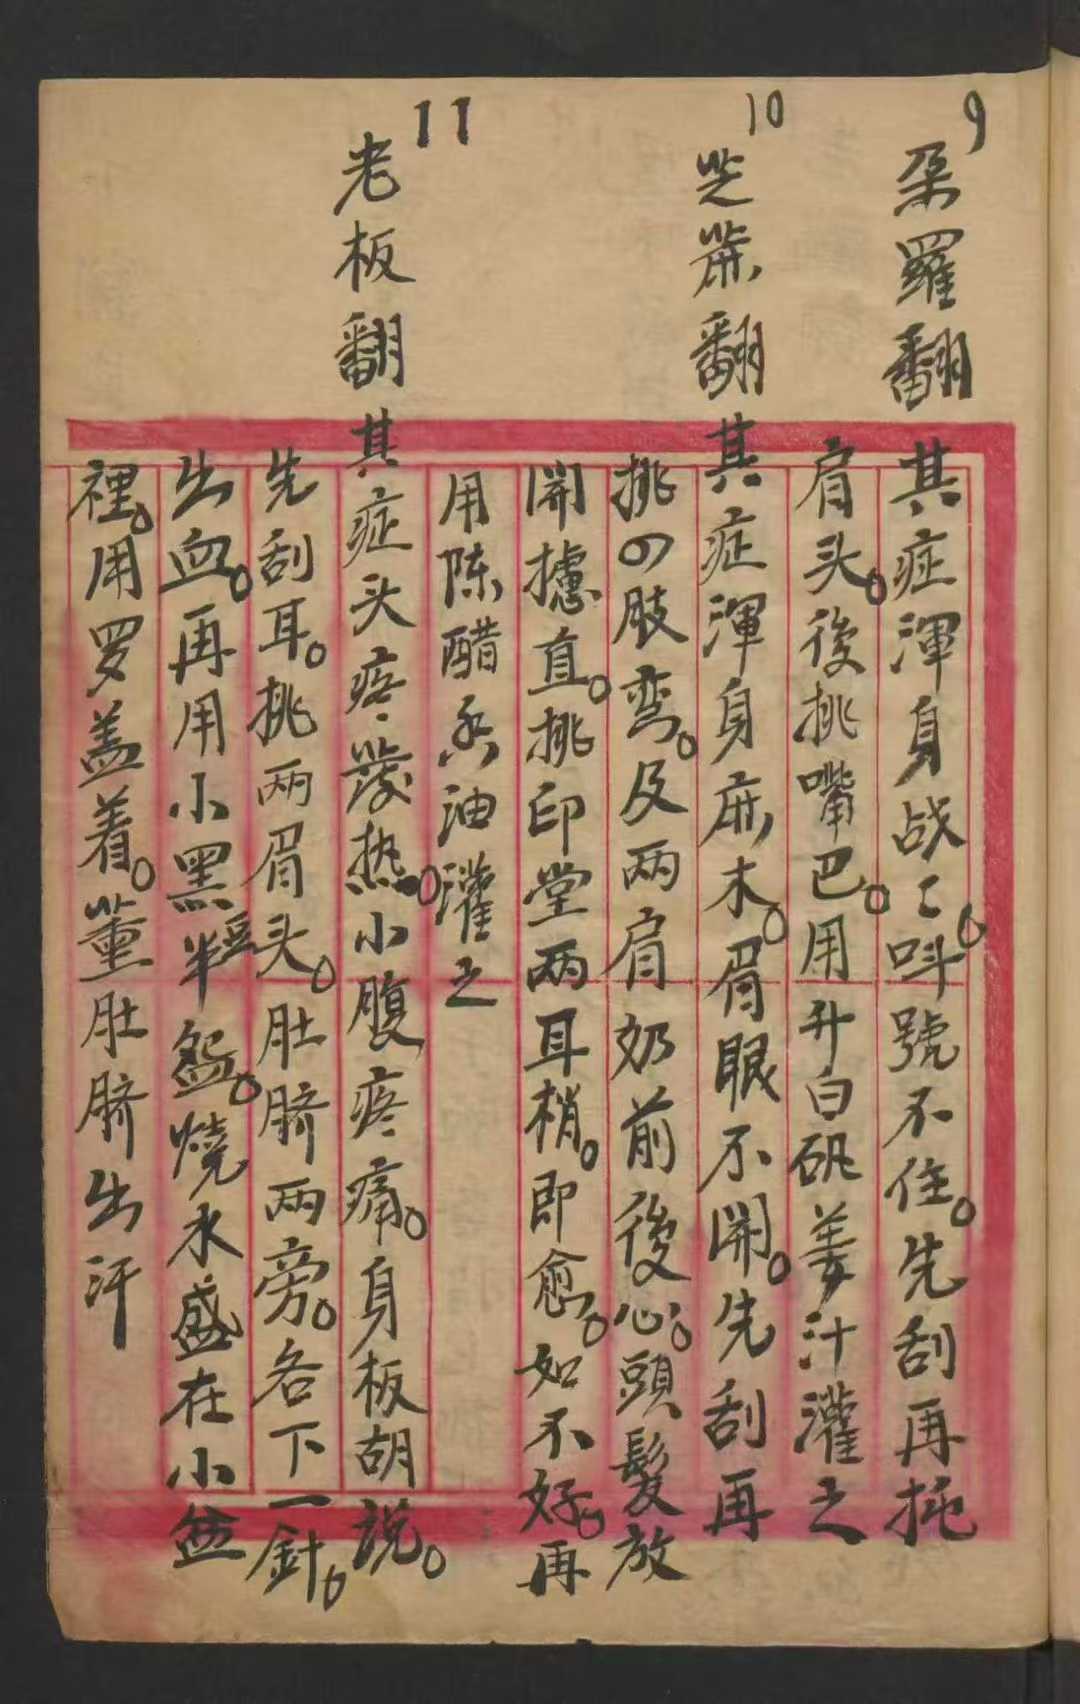 9
朶羅翻
其症渾身战〻。呌號不住。先刮再扽
肩头。後挑嘴巴。用升白矾姜汁灌之
10
芝蔴翻
其症渾身麻木。眉眼不開。先刮再
挑四肢弯。及两肩奶前後心。頭髮放
開攄直。挑印堂两耳梢。即愈。如不好。再
用陈醋香油灌之
11
老板翻
其症头疼發热。小腹疼痛。身板胡説。
先刮耳。挑两眉头。肚臍两旁。各下一針。
出血。再用小黑豆半盌。燒水盛在小盆
裡。用罗盖着。薰肚臍出汗